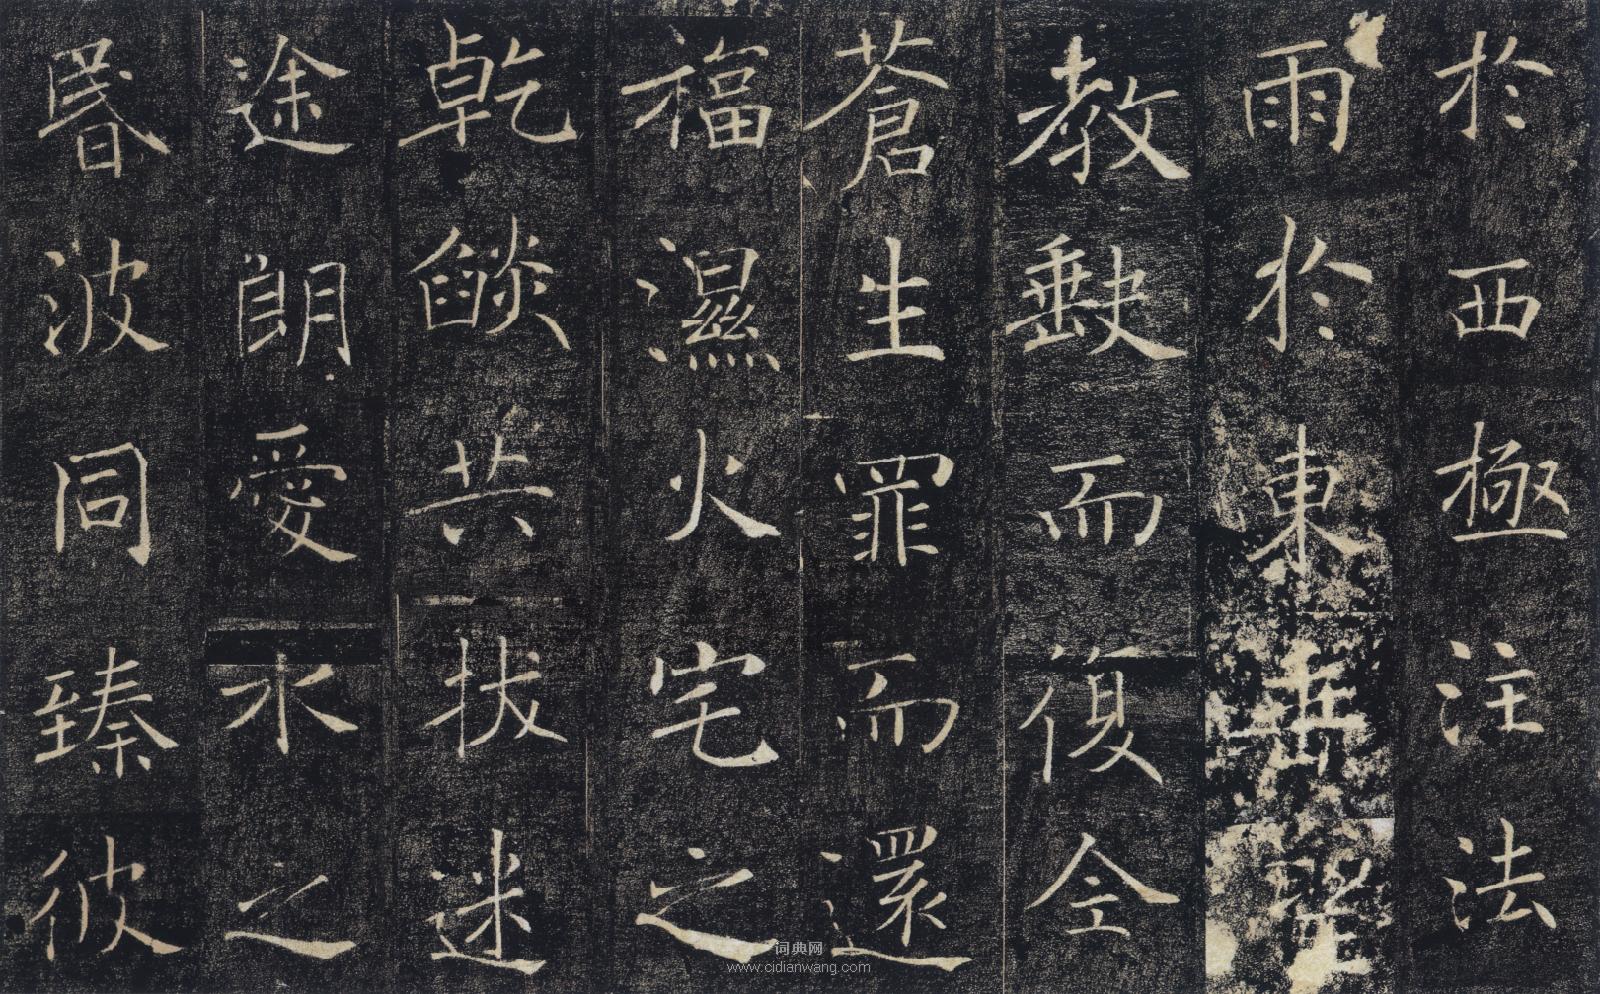 於西極注法
雨於東垂聖
教缺而復全
蒼生罪而還
福濕火宅之
乾燄共拔迷
途朗愛水之
昬波同臻彼
词典网
www.cidianwang.com